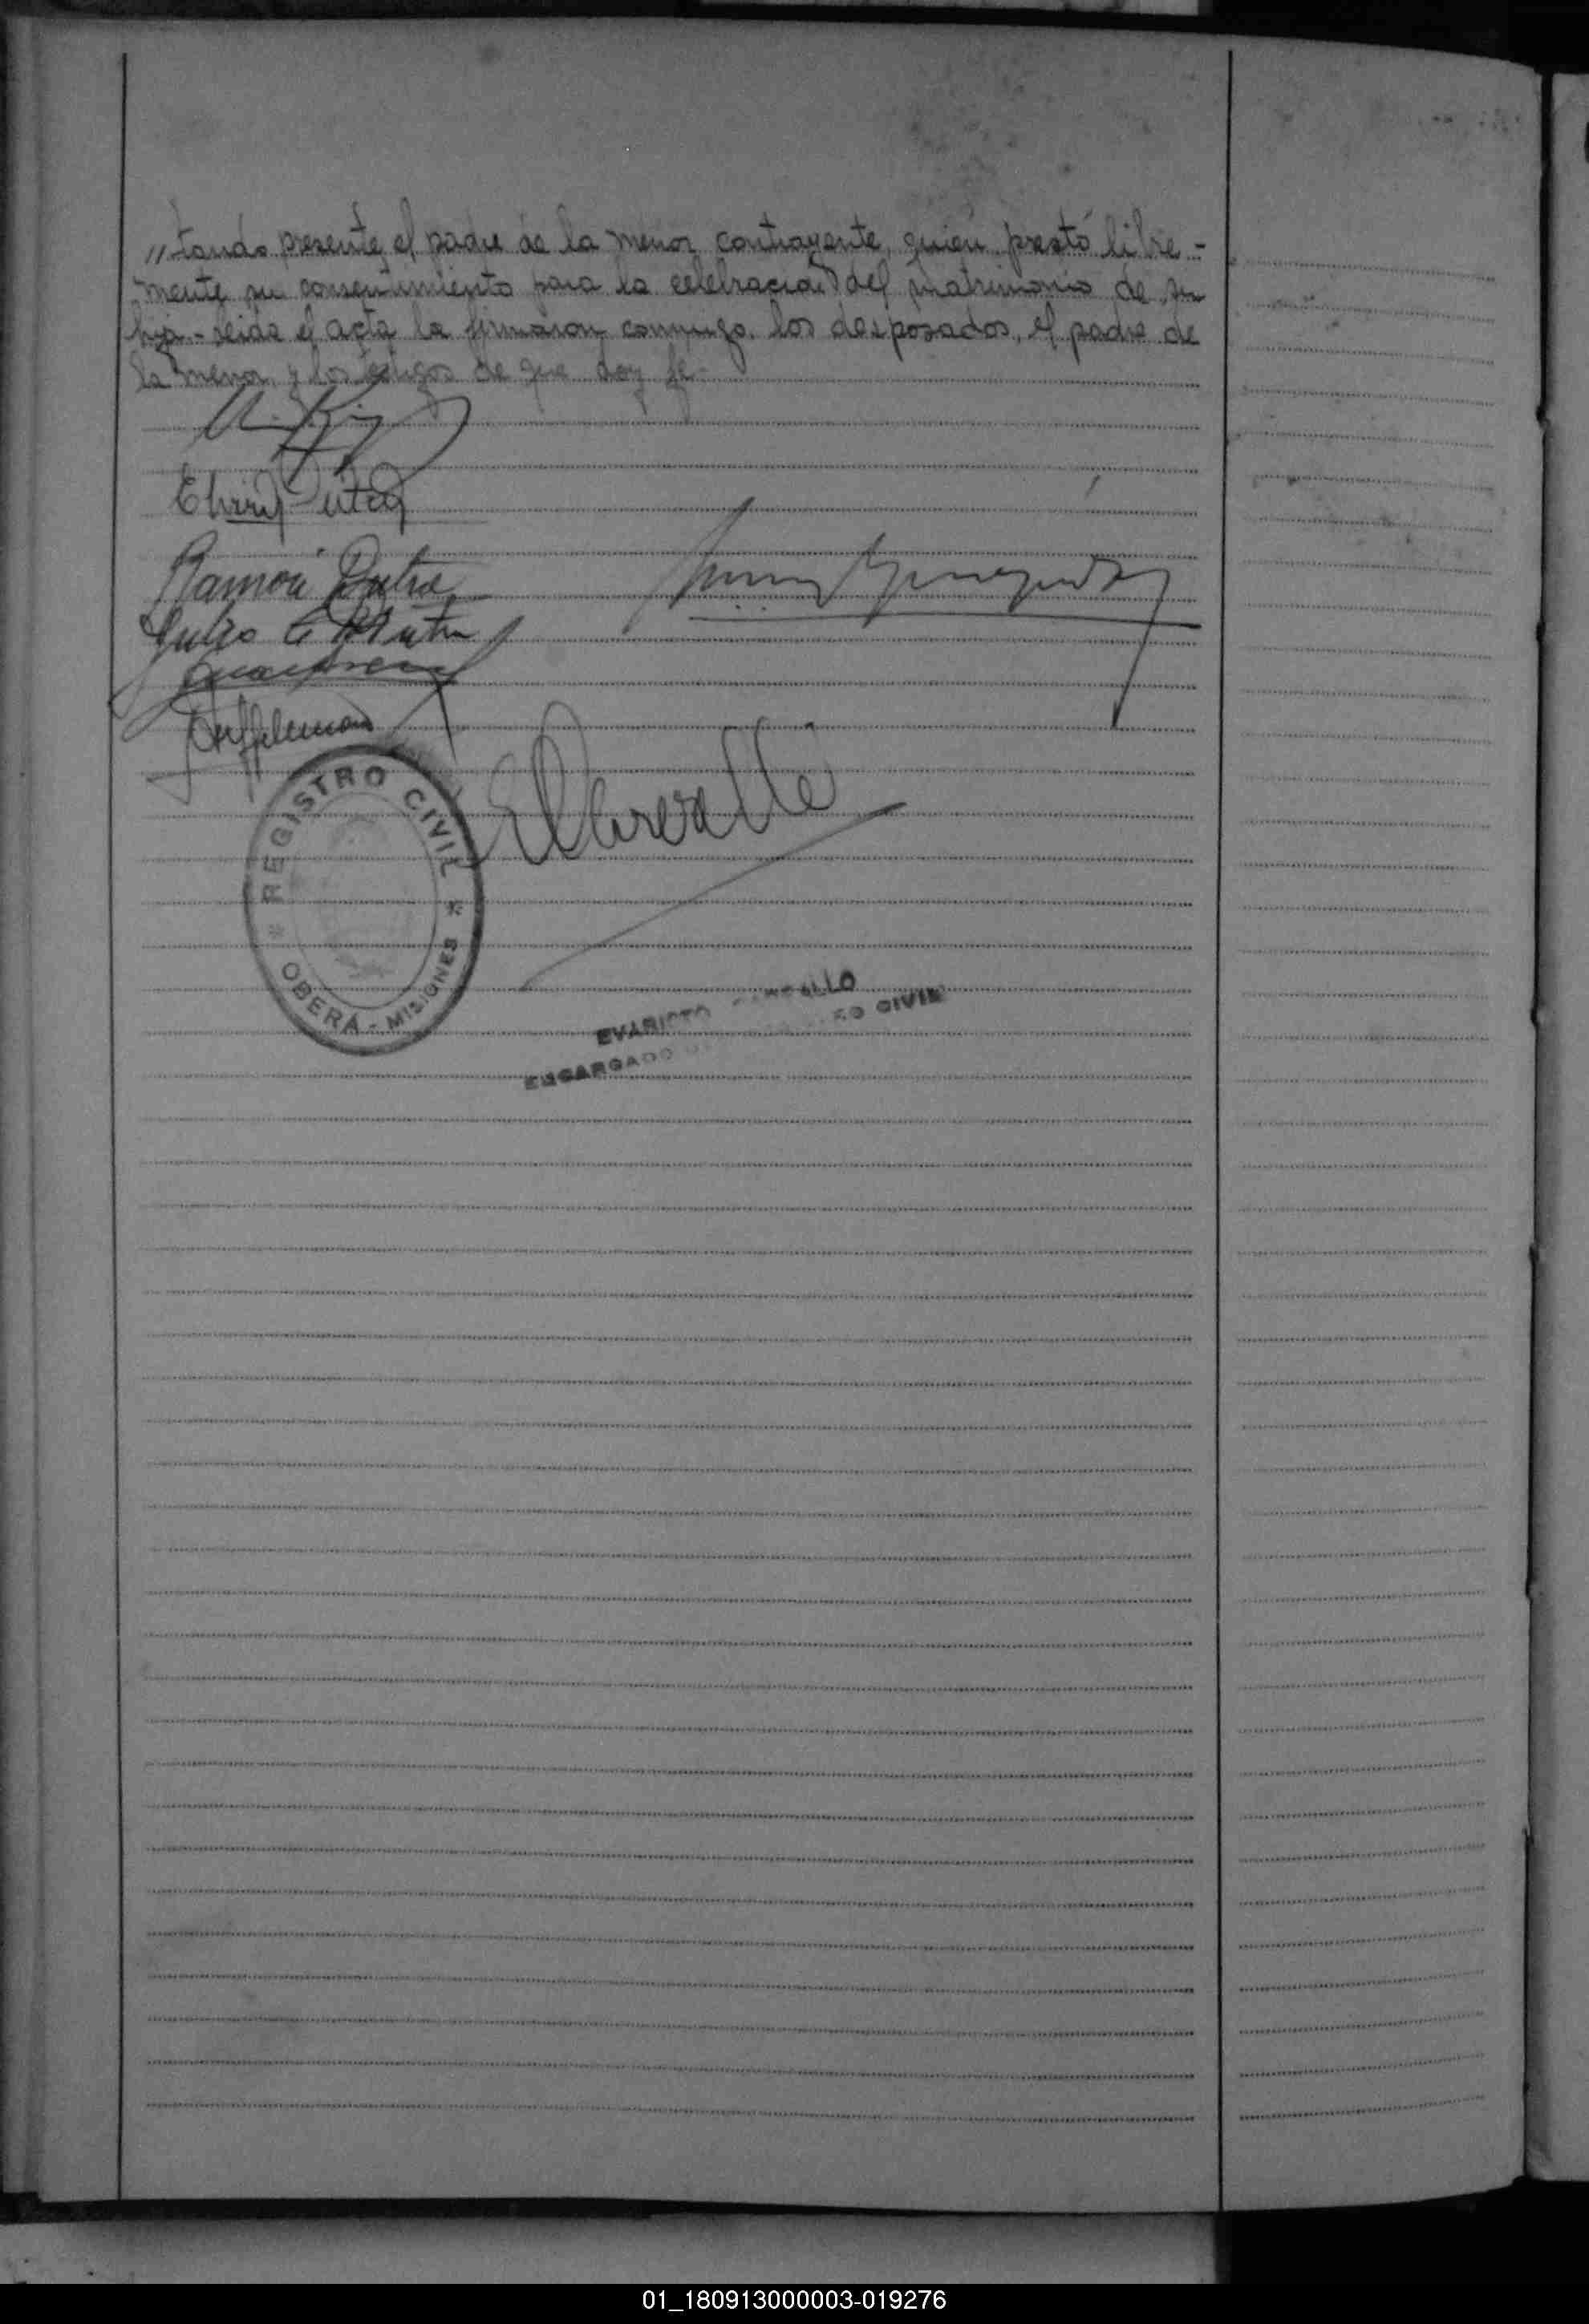 "tando presente el padre de la menor contrayente, quien prestó libre-
mente su consentimiento para la celebración del matrimonio de su
hija.- Leida el acta la firmaron conmigo, los desposados, el padre de
la menor y los testigos de que doy fe.-
Ramón Dutra
Julio C Dutra
REGISTRO CIVIL
OBERA - MISIONES
EVARISTO
ENCARGADO CIVIL
01_180913000003-019276